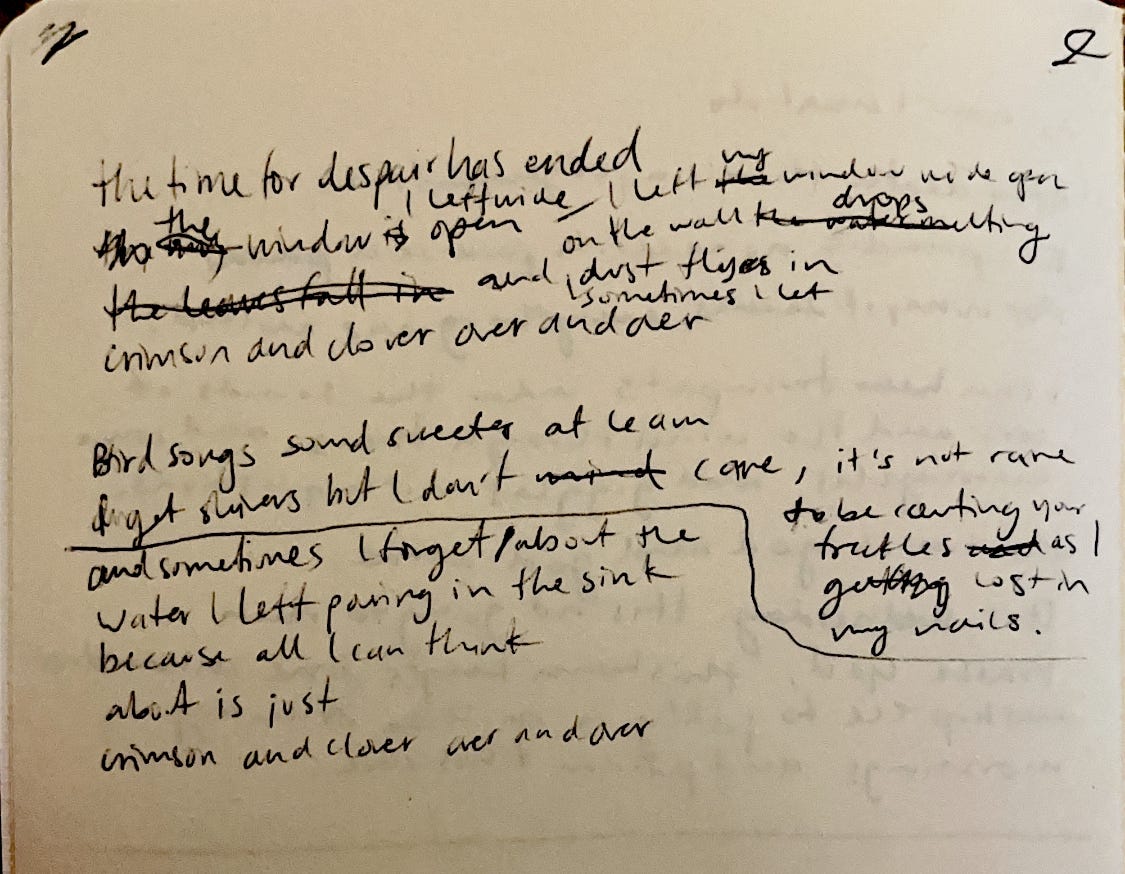 2
the time for despair has ended
I left wide / I left the my window wide open
the my the window is open
on the wall the water drops melting
the leaves fall in and dust flyes in
sometimes I let
crimson and clover over and over
Bird songs sound sweeter at 6 am
I get shivers but I don't mind care, it's not rare
to be counting your
freckles and as I
getting lost in
my nails.
and sometimes I forget about the
water I left pouring in the sink
because all I can think
about is just
crimson and clover over and over